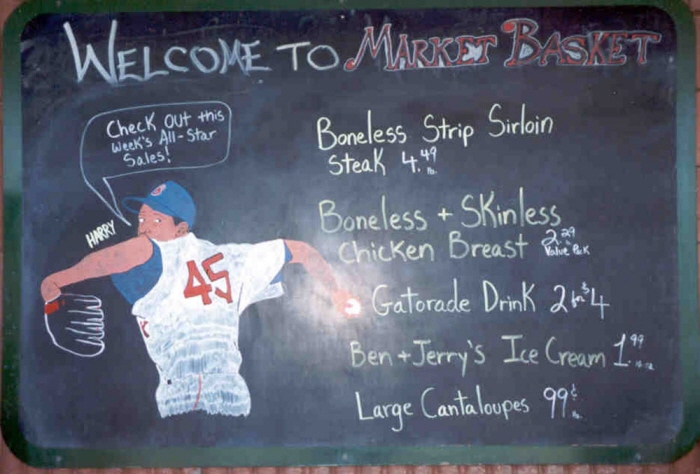 WELCOME TO MARKET BASKET
Check Out this
Week's All-Star
Sales!
HARRY
45
Boneless Strip Sirloin
Steak 4.49 lb.
Boneless + Skinless
Chicken Breast 2.29 lb
Value Pack
Gatorade Drink 2 for $4
Ben + Jerry's Ice Cream 1.99
Large Cantaloupes 99¢